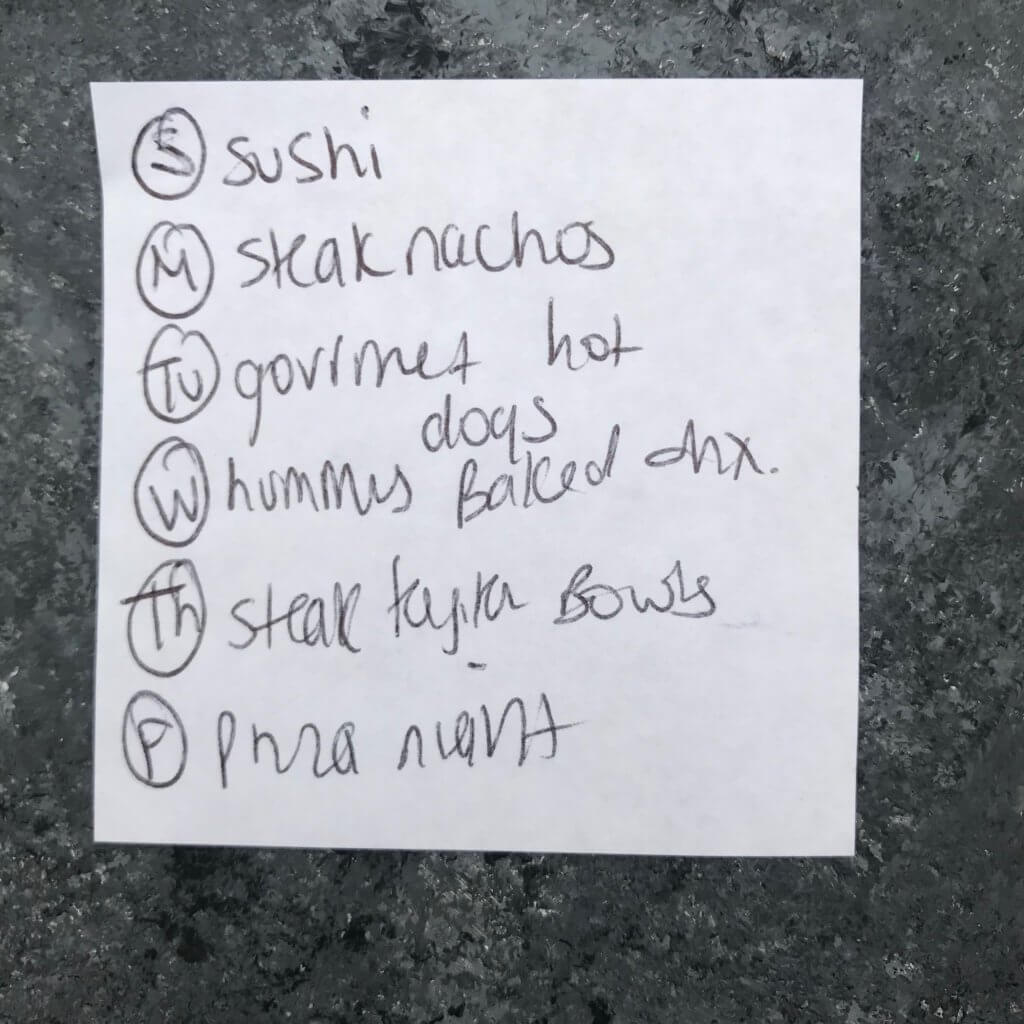 S sushi
M steak nachos
Tu gourmet hot
dogs
W hummus Baked chx.
Th steak fajita Bowls
F pizza night